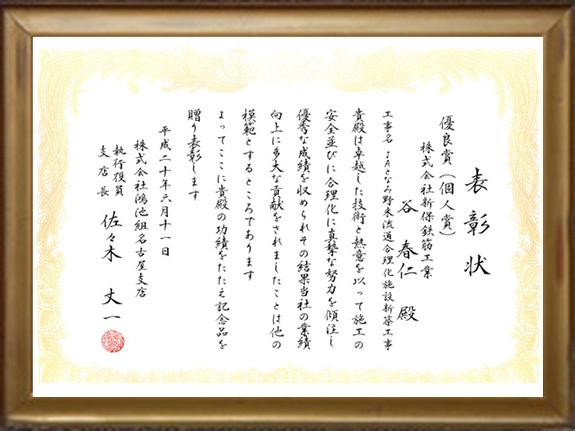 表彰状
優良賞(個人賞)
株式会社新保鉄筋工業
谷 春仁 殿
工事名 JAとなみ野野菜流通合理化施設新築工事
貴殿は卓越した技術と熱意を以って施工の
安全並びに合理化に真摯な努力を傾注し
優秀な成績を収められその結果当社の業績
向上に多大な貢献をされましたことは他の
模範とするところであります
よってここに貴殿の功績をたたえ記念品を
贈り表彰します
平成二十年六月十一日
株式会社鴻池組名古屋支店
執行役員
支店長 佐々木 丈一